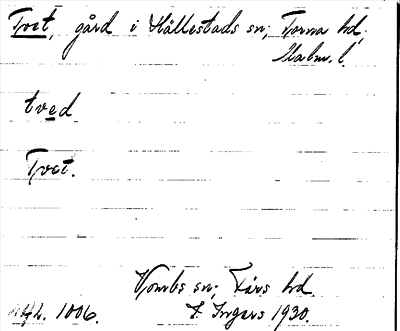 Tvet, gård i Hällestads sn; Torna hd,
Malm. l.
tved
Tvet.
Vombs sn; Färs hd.
Ahl. 1006. F. Ingers 1930.